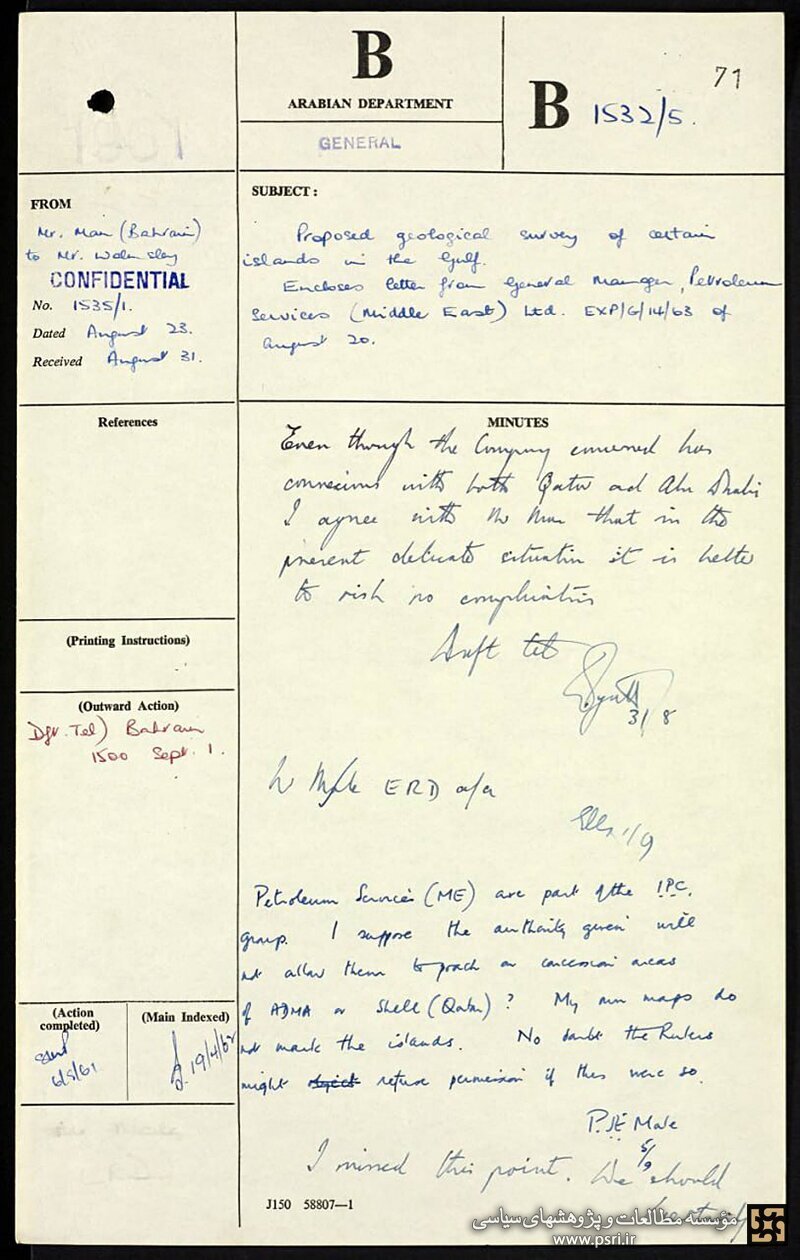 71
B
ARABIAN DEPARTMENT
GENERAL
B 1532/5.
FROM
Mr. Man (Bahrain)
to Mr. Walmsley
CONFIDENTIAL
No. 1535/1.
Dated August 23.
Received August 31.
SUBJECT :
Proposed geological survey of certain
islands in the Gulf.
Encloses letter from General Manager, Petroleum
Services (Middle East) Ltd. EXP/G/14/63 of
August 20.
References
(Printing Instructions)
(Outward Action)
Dft. Tel) Bahrain
1500 Sept. 1.
(Action
completed)
(Main Indexed)
19/4/62
MINUTES
Even though the Company concerned has
connexions with both Qatar and Abu Dhabi
I agree with Mr Man that in the
present delicate situation it is better
to risk no complications
Draft tel
31/8
Mr Male ERD o/r
1/9
Petroleum Services (ME) are part of the IPC.
group. I suppose the authority given will
not allow them to poach on concession areas
of ADMA or Shell (Qatar) ? My own maps do
not mark the islands. No doubt the Rulers
might object refuse permission if this were so.
P.J.E. Male
5/9
I missed this point. We should
J150 58807—1
مؤسسه مطالعات و پژوهشهای سیاسی
www.psri.ir